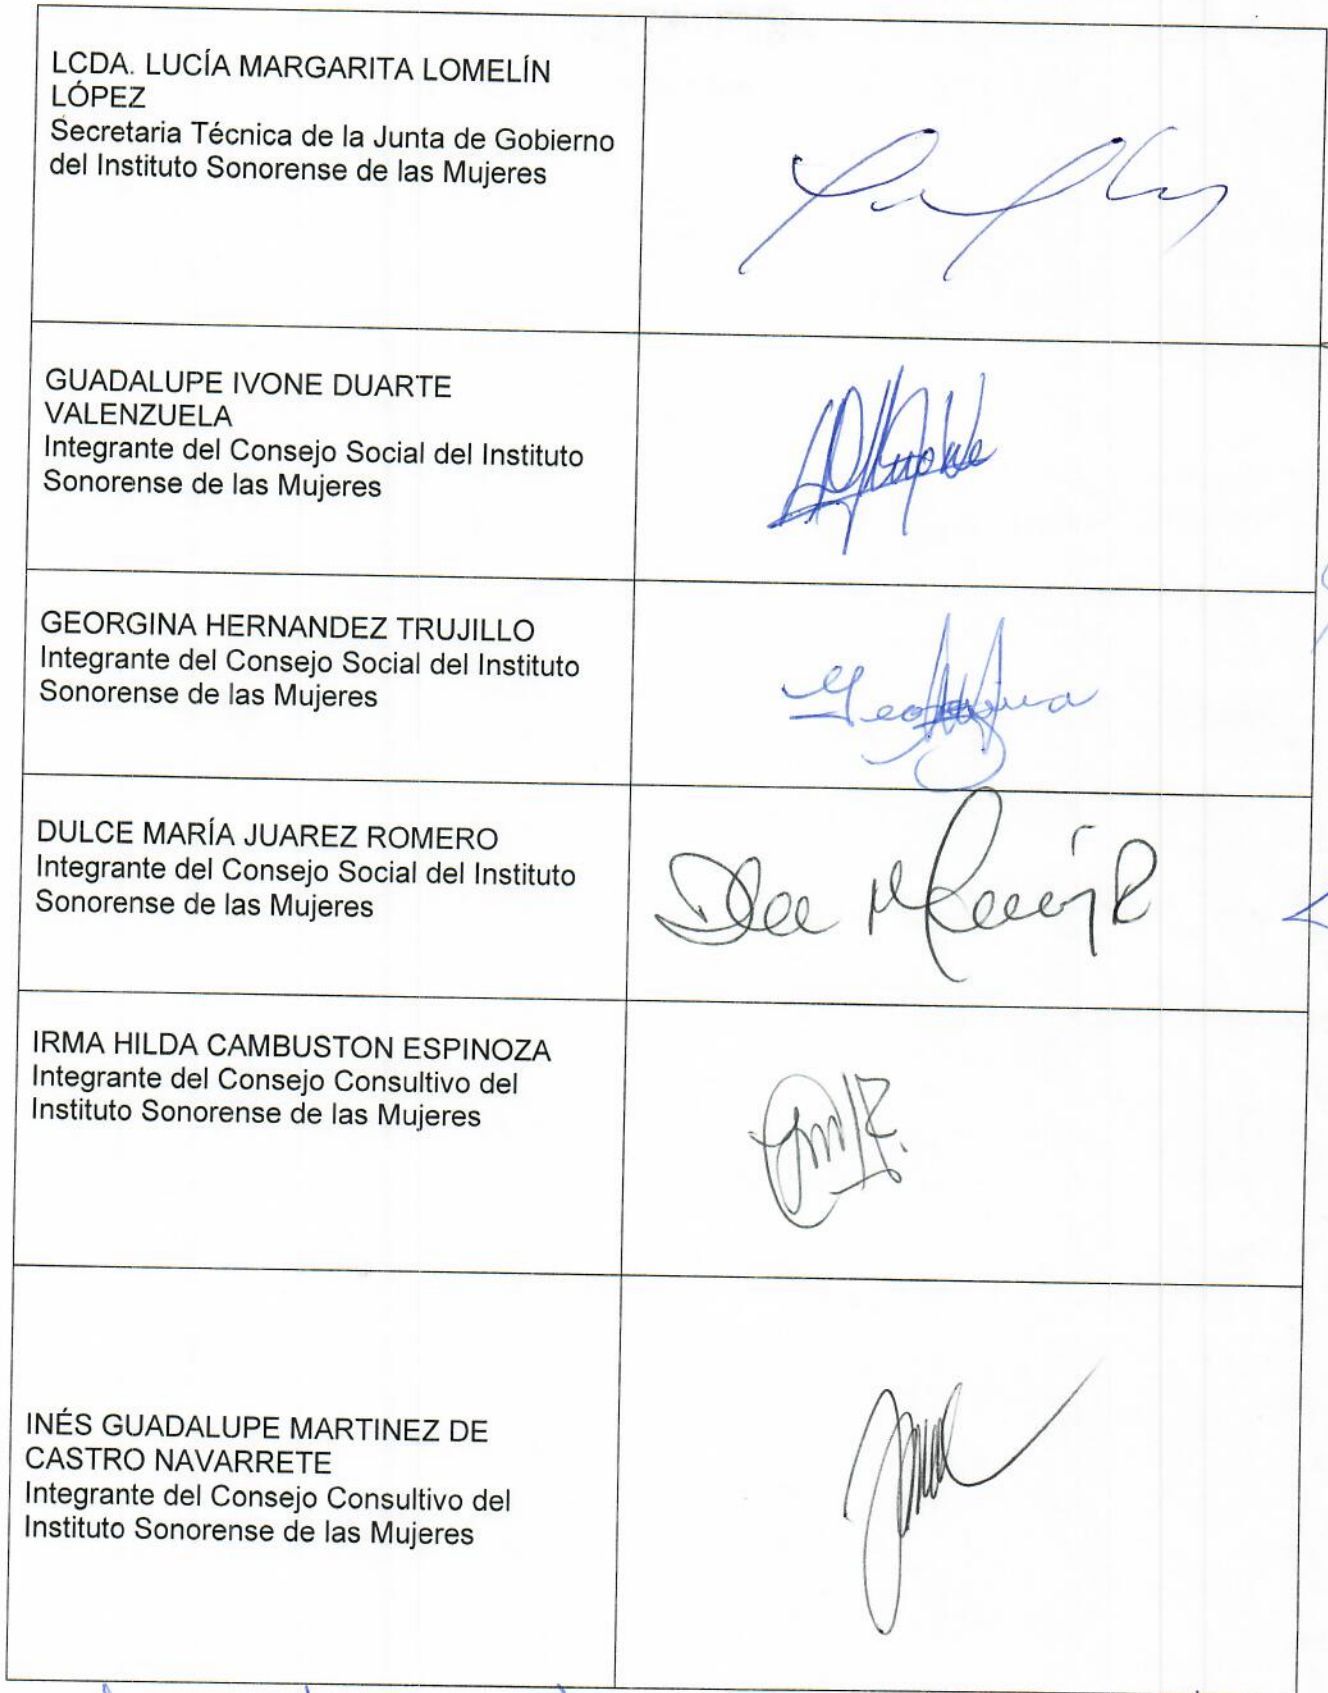 LCDA. LUCÍA MARGARITA LOMELÍN
LÓPEZ
Secretaria Técnica de la Junta de Gobierno
del Instituto Sonorense de las Mujeres
GUADALUPE IVONE DUARTE
VALENZUELA
Integrante del Consejo Social del Instituto
Sonorense de las Mujeres
GEORGINA HERNANDEZ TRUJILLO
Integrante del Consejo Social del Instituto
Sonorense de las Mujeres
DULCE MARÍA JUAREZ ROMERO
Integrante del Consejo Social del Instituto
Sonorense de las Mujeres
IRMA HILDA CAMBUSTON ESPINOZA
Integrante del Consejo Consultivo del
Instituto Sonorense de las Mujeres
INÉS GUADALUPE MARTINEZ DE
CASTRO NAVARRETE
Integrante del Consejo Consultivo del
Instituto Sonorense de las Mujeres